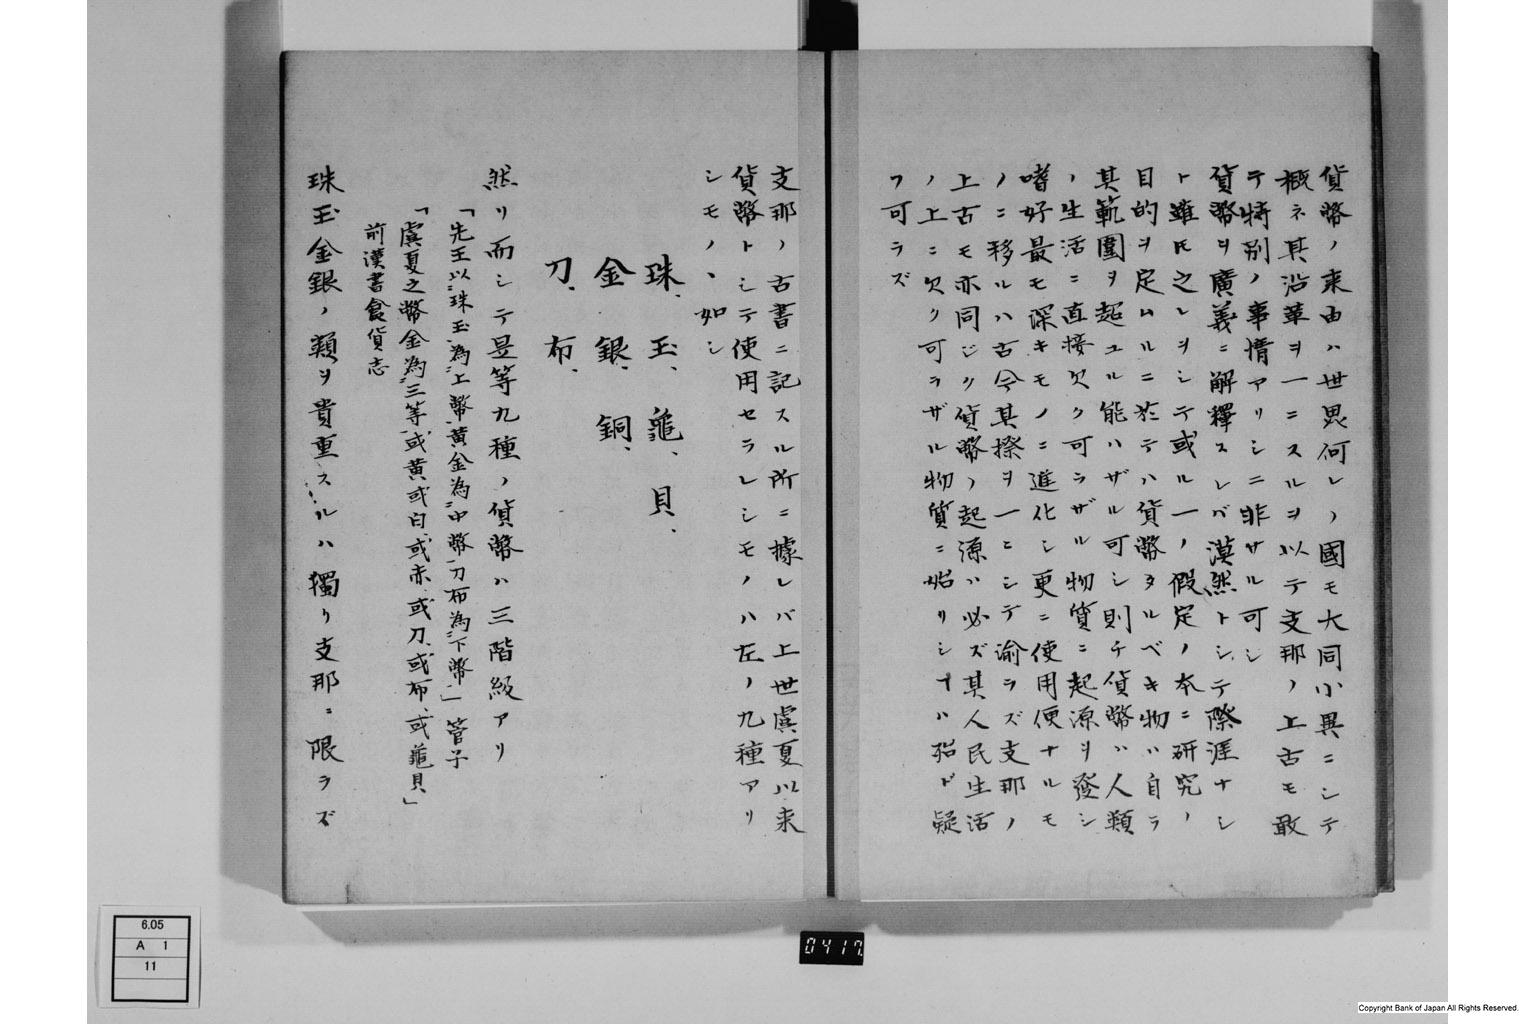 貨幣ノ来由ハ世界何レノ國モ大同小異ニシテ
概ネ其沿革ヲ一ニスルヲ以テ支那ノ上古モ敢
テ特別ノ事情アリシニ非サル可シ
貨幣ヲ廣義ニ解釋スレバ漠然トシテ際涯ナシ
ト雖𪜈之レヲシテ或ル一ノ假定ノ本ニ研究ノ
目的ヲ定ムルニ於テハ貨幣タルベキ物ハ自ラ
其範圍ヲ超ユル能ハザル可シ則チ貨幣ハ人類
ノ生活ニ直接欠ク可ラザル物質ニ起源ヲ發シ
嗜好最モ深キモノニ進化シ更ニ使用便ナルモ
ノニ移ルハ古今其揆ヲ一ニシテ渝ラズ支那ノ
上古モ亦同ジク貨幣ノ起源ハ必ズ其人民生活
ノ上ニ欠ク可ラザル物質ニ始リシヿハ殆ド疑
フ可ラズ
支那ノ古書ニ記スル所ニ據レバ上世虞夏以来
貨幣トシテ使用セラレシモノハ左ノ九種アリ
シモノヽ如シ
珠、玉、龜、貝、
金、銀、銅、
刀、布、
然リ而シテ是等九種ノ貨幣ハ三階級アリ
「先王以珠玉為上幣黄金為中幣刀布為下幣」管子
「虞夏之幣金為三等或黄或白或赤、或刀、或布、或龜貝」
前漢書食貨志
珠玉金銀ノ類ヲ貴重スルハ獨リ支那ニ限ラズ
6.05
A 1
11
0417
Copyright Bank of Japan All Rights Reserved.